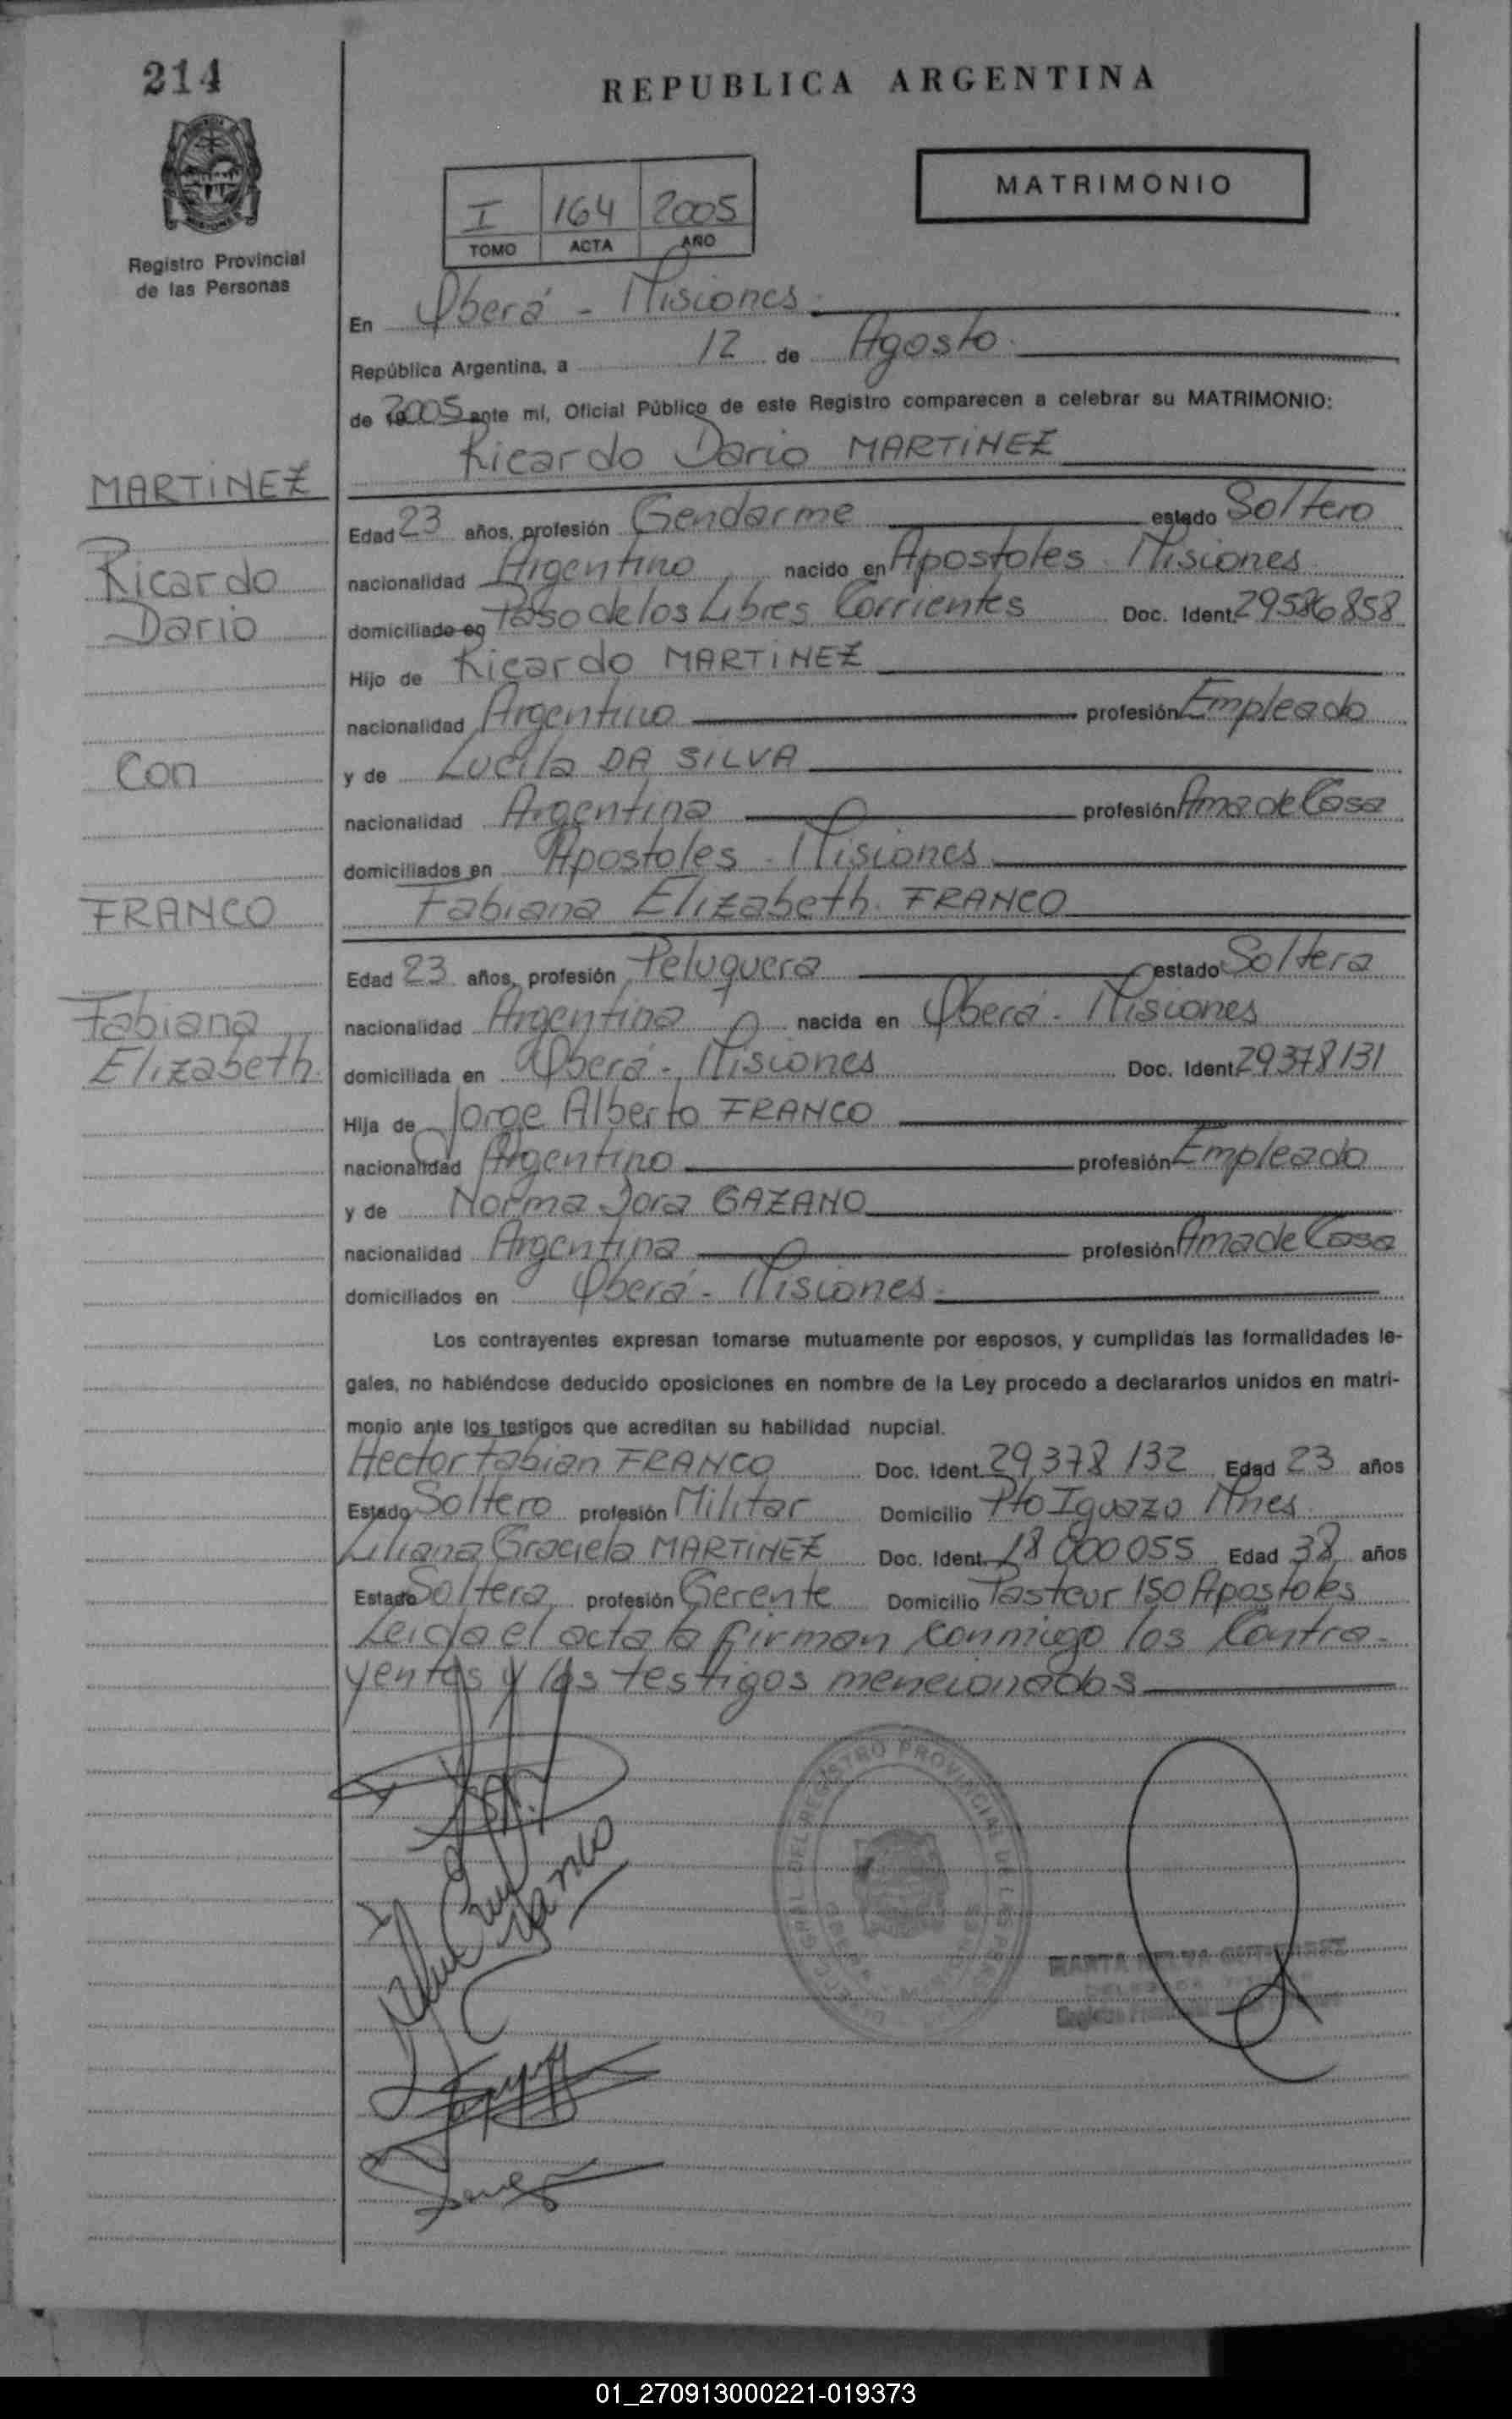 214
REPUBLICA ARGENTINA
MATRIMONIO
I 164 2005
TOMO ACTA AÑO
Registro Provincial
de las Personas
En Oberá - Misiones.
República Argentina, a 12 de Agosto.
de 2005 ante mí, Oficial Público de este Registro comparecen a celebrar su MATRIMONIO:
Ricardo Dario MARTINEZ
MARTINEZ
Edad 23 años, profesión Gendarme estado Soltero
Ricardo
nacionalidad Argentino nacido en Apostoles Misiones
Dario
domiciliado en Paso de los Libres Corrientes Doc. Ident. 29586858
Hijo de Ricardo MARTINEZ
nacionalidad Argentino profesión Empleado
Con
y de Lucila DA SILVA
nacionalidad Argentina profesión Ama de Casa
domiciliados en Apostoles - Misiones
FRANCO
Fabiana Elizabeth FRANCO
Edad 23 años, profesión Peluquera estado Soltera
Fabiana
nacionalidad Argentina nacida en Oberá - Misiones
Elizabeth
domiciliada en Oberá - Misiones Doc. Ident. 29378131
Hija de Jorge Alberto FRANCO
nacionalidad Argentino profesión Empleado
y de Norma Dora GAZANO
nacionalidad Argentina profesión Ama de Casa
domiciliados en Oberá - Misiones.
Los contrayentes expresan tomarse mutuamente por esposos, y cumplidas las formalidades le-
gales, no habiéndose deducido oposiciones en nombre de la Ley procedo a declararlos unidos en matri-
monio ante los testigos que acreditan su habilidad nupcial.
Hector Fabian FRANCO Doc. Ident. 29,378 132 Edad 23 años
Estado Soltero profesión Militar Domicilio Pto Iguazo Mnes
Liliana Graciela MARTINEZ Doc. Ident. 18 000 055 Edad 38 años
Estado Soltera profesión Gerente Domicilio Pasteur 150 Apostoles
Leida el acta la firman conmigo los Contra-
yentes y los testigos mencionados
Franco
REGISTRO PROVINCIAL DE LAS
MARTA
01_270913000221-019373